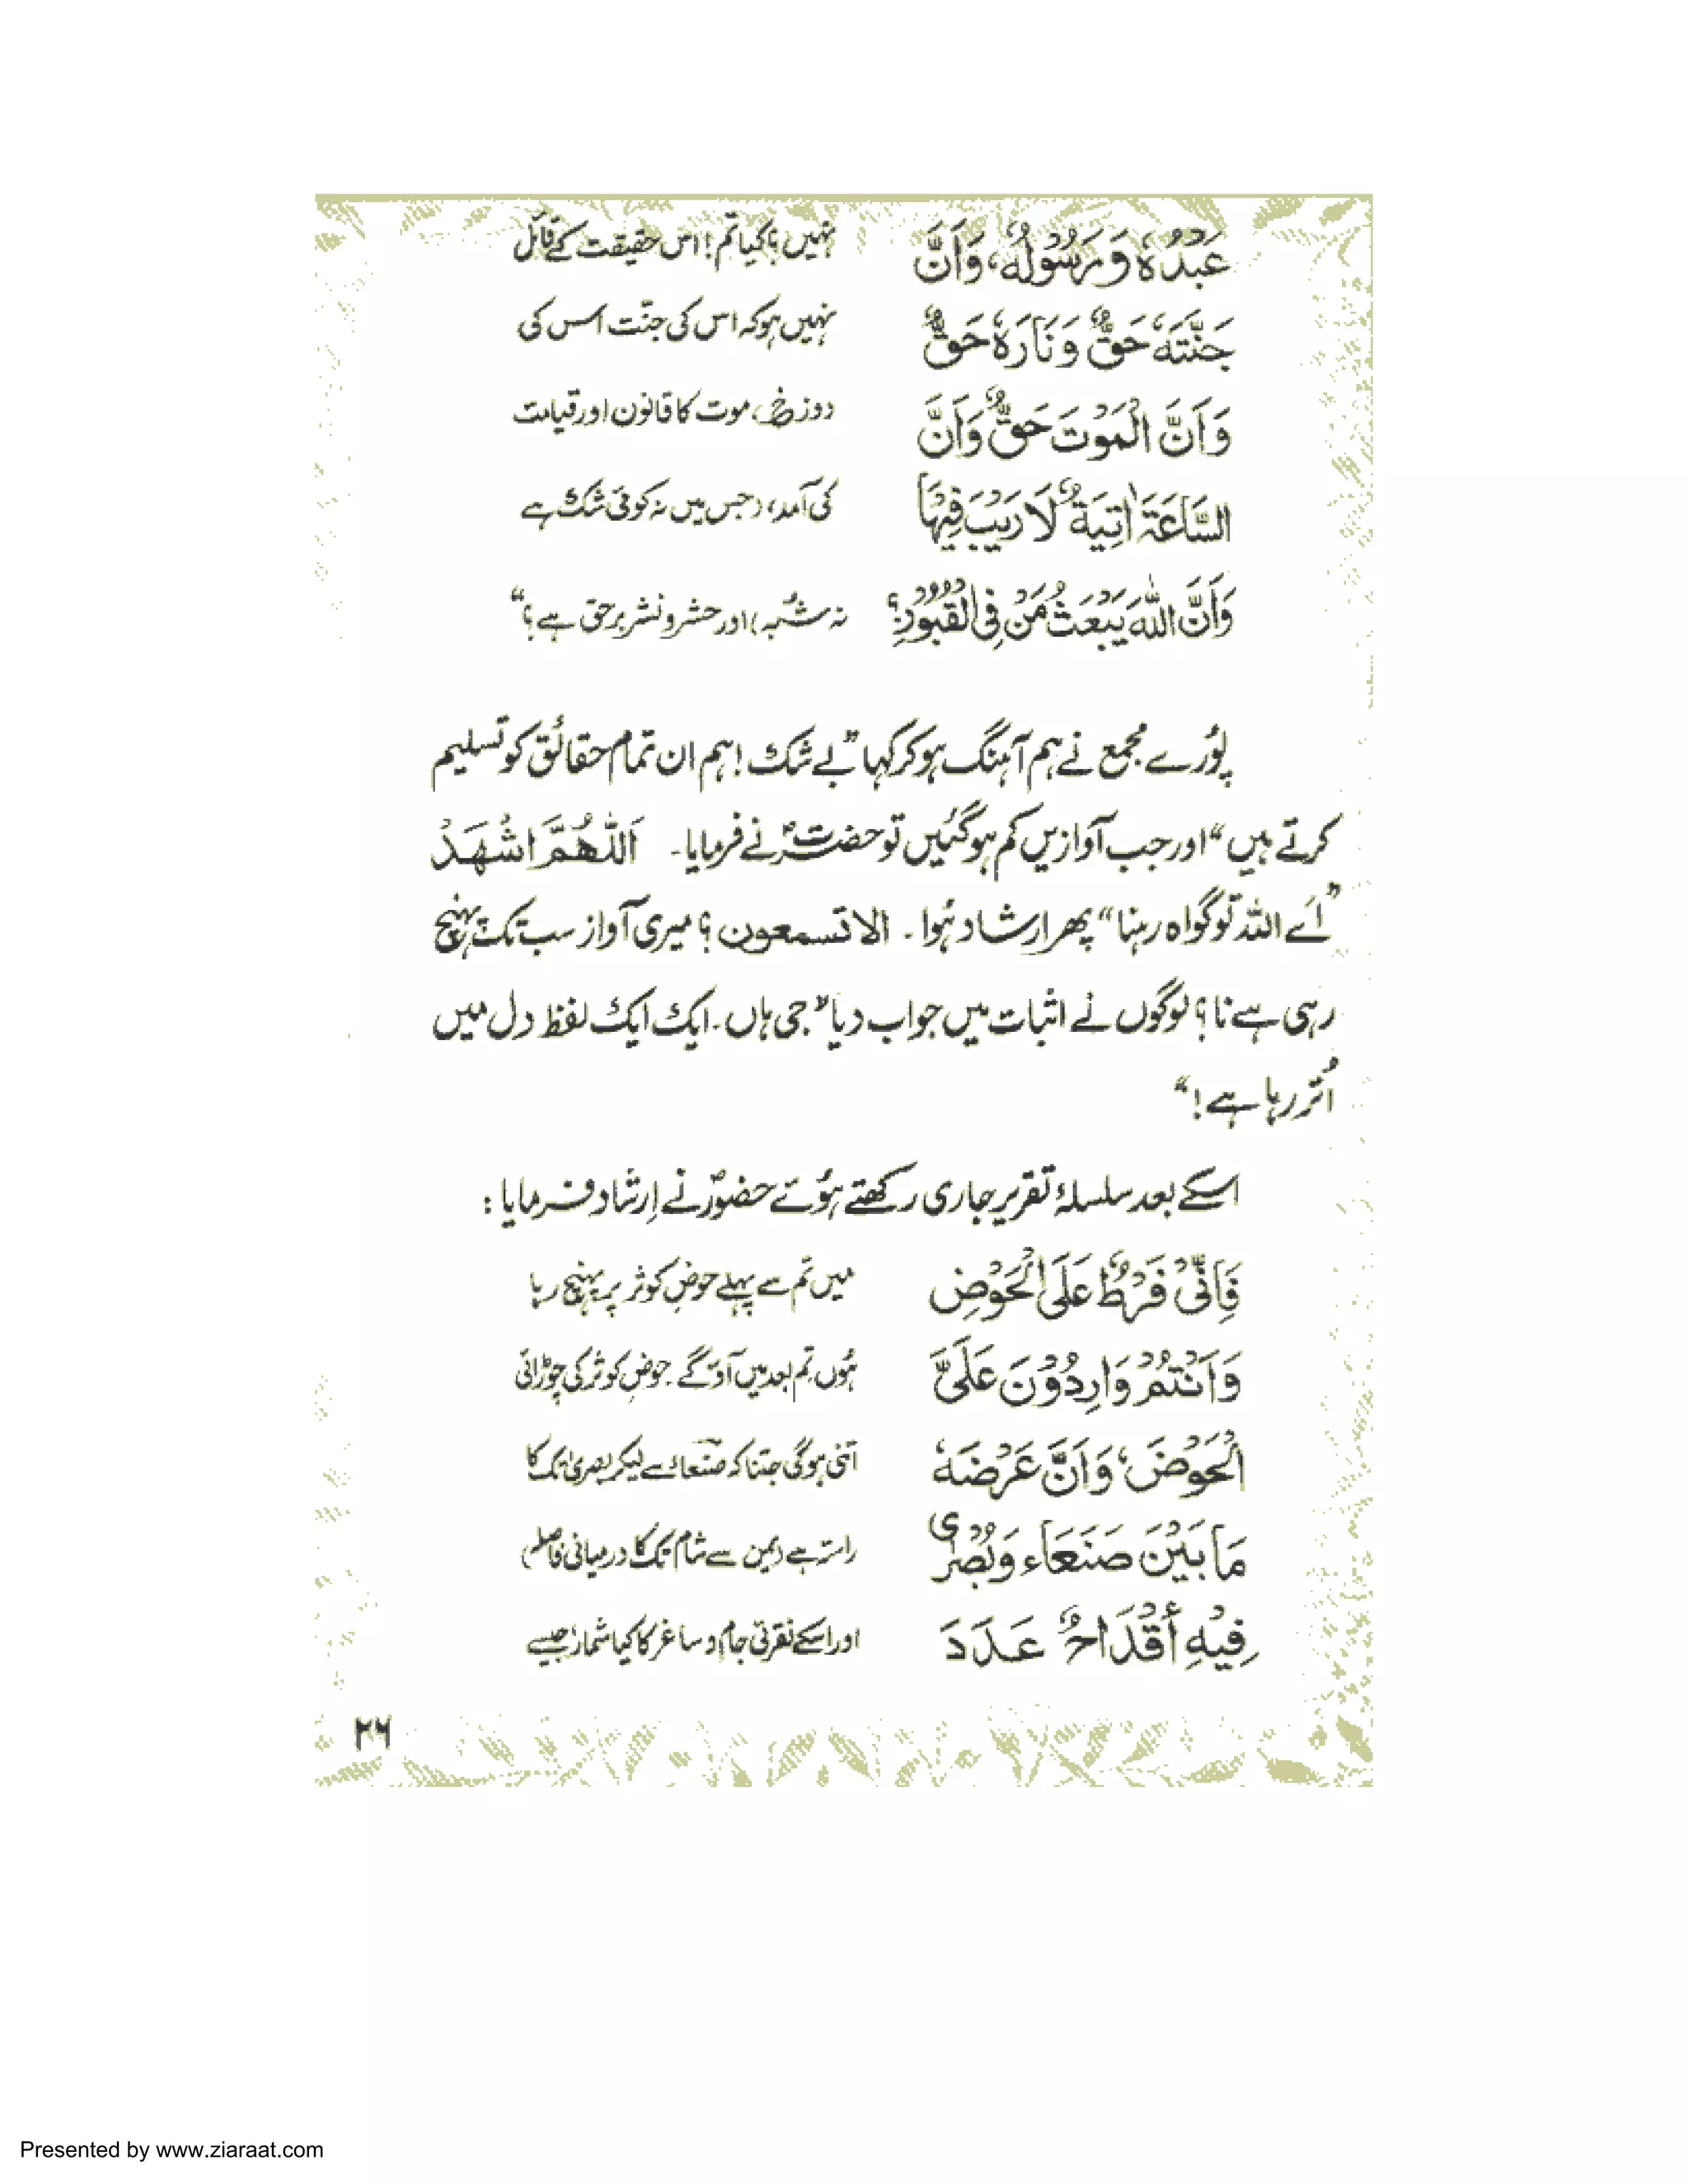 عَبْدُهٗ وَرَسُولُهٗ، وَاَنَّ
نہیں؟ کیا تم! اس حقیقت کے قائل
جَنَّتَهٗ حَقٌّ وَنَارَهٗ حَقٌّ
نہیں ہو کہ اس کی جنّت اس کی
وَاَنَّ الْمَوْتَ حَقٌّ وَاَنَّ
دوزخ، موت کا قانون اور قیامت
السَّاعَةَ اٰتِيَةٌ لَا رَيْبَ فِيْهَا
کی آمد، (جس میں نہ کوئی شک ہے
وَاَنَّ اللّٰهَ يَبْعَثُ مَنْ فِى الْقُبُوْرِ؟
نہ شُبہ) اور حشر و نشر برحق ہے؟“
پُورے مجمع نے ہم آہنگ ہو کر کہا ”بے شک! ہم ان تمام حقائق کو تسلیم
کرتے ہیں“ اور جب آوازیں کم ہو گئیں تو حضرتؐ نے فرمایا۔ اَللّٰهُمَّ اشْهَدْ
”اَے اللہ تو گواہ رہنا“ پھر ارشاد ہُوا۔ الا تسمعون؟ میری آواز سب تک پہنچ
رہی ہے نا؟ لوگوں نے اثبات میں جواب دیا ”جی ہاں۔ ایک ایک لفظ دل میں
اُتر رہا ہے!“
اسکے بعد سلسلۂ تقریر جاری رکھتے ہُوئے حضورؐ نے اِرشاد فرمایا:
فَاِنِّىْ فَرَطٌ عَلَى الْحَوْضِ
میں تم سے پہلے حوضِ کوثر پر پہنچ رہا
وَاَنْتُمْ وَارِدُوْنَ عَلَىَّ
ہُوں، تم بعد میں آؤگے۔ حوضِ کوثر کی چوڑائی
الْحَوْضَ، وَاَنَّ عَرْضَهٗ
اتنی ہوگی جتنا کہ صنعاء سے لیکر بصریٰ تک کا
مَا بَيْنَ صَنْعَاءَ وَبُصْرٰى
راستہ ہے (یمن سے شام تک کا درمیانی فاصلہ)
فِيْهِ أَقْدَاحٌ عَدَدَ
اور اسکے نقرئی جام و ساغر کا کیا شمار، جیسے
۲۶
Presented by www.ziaraat.com